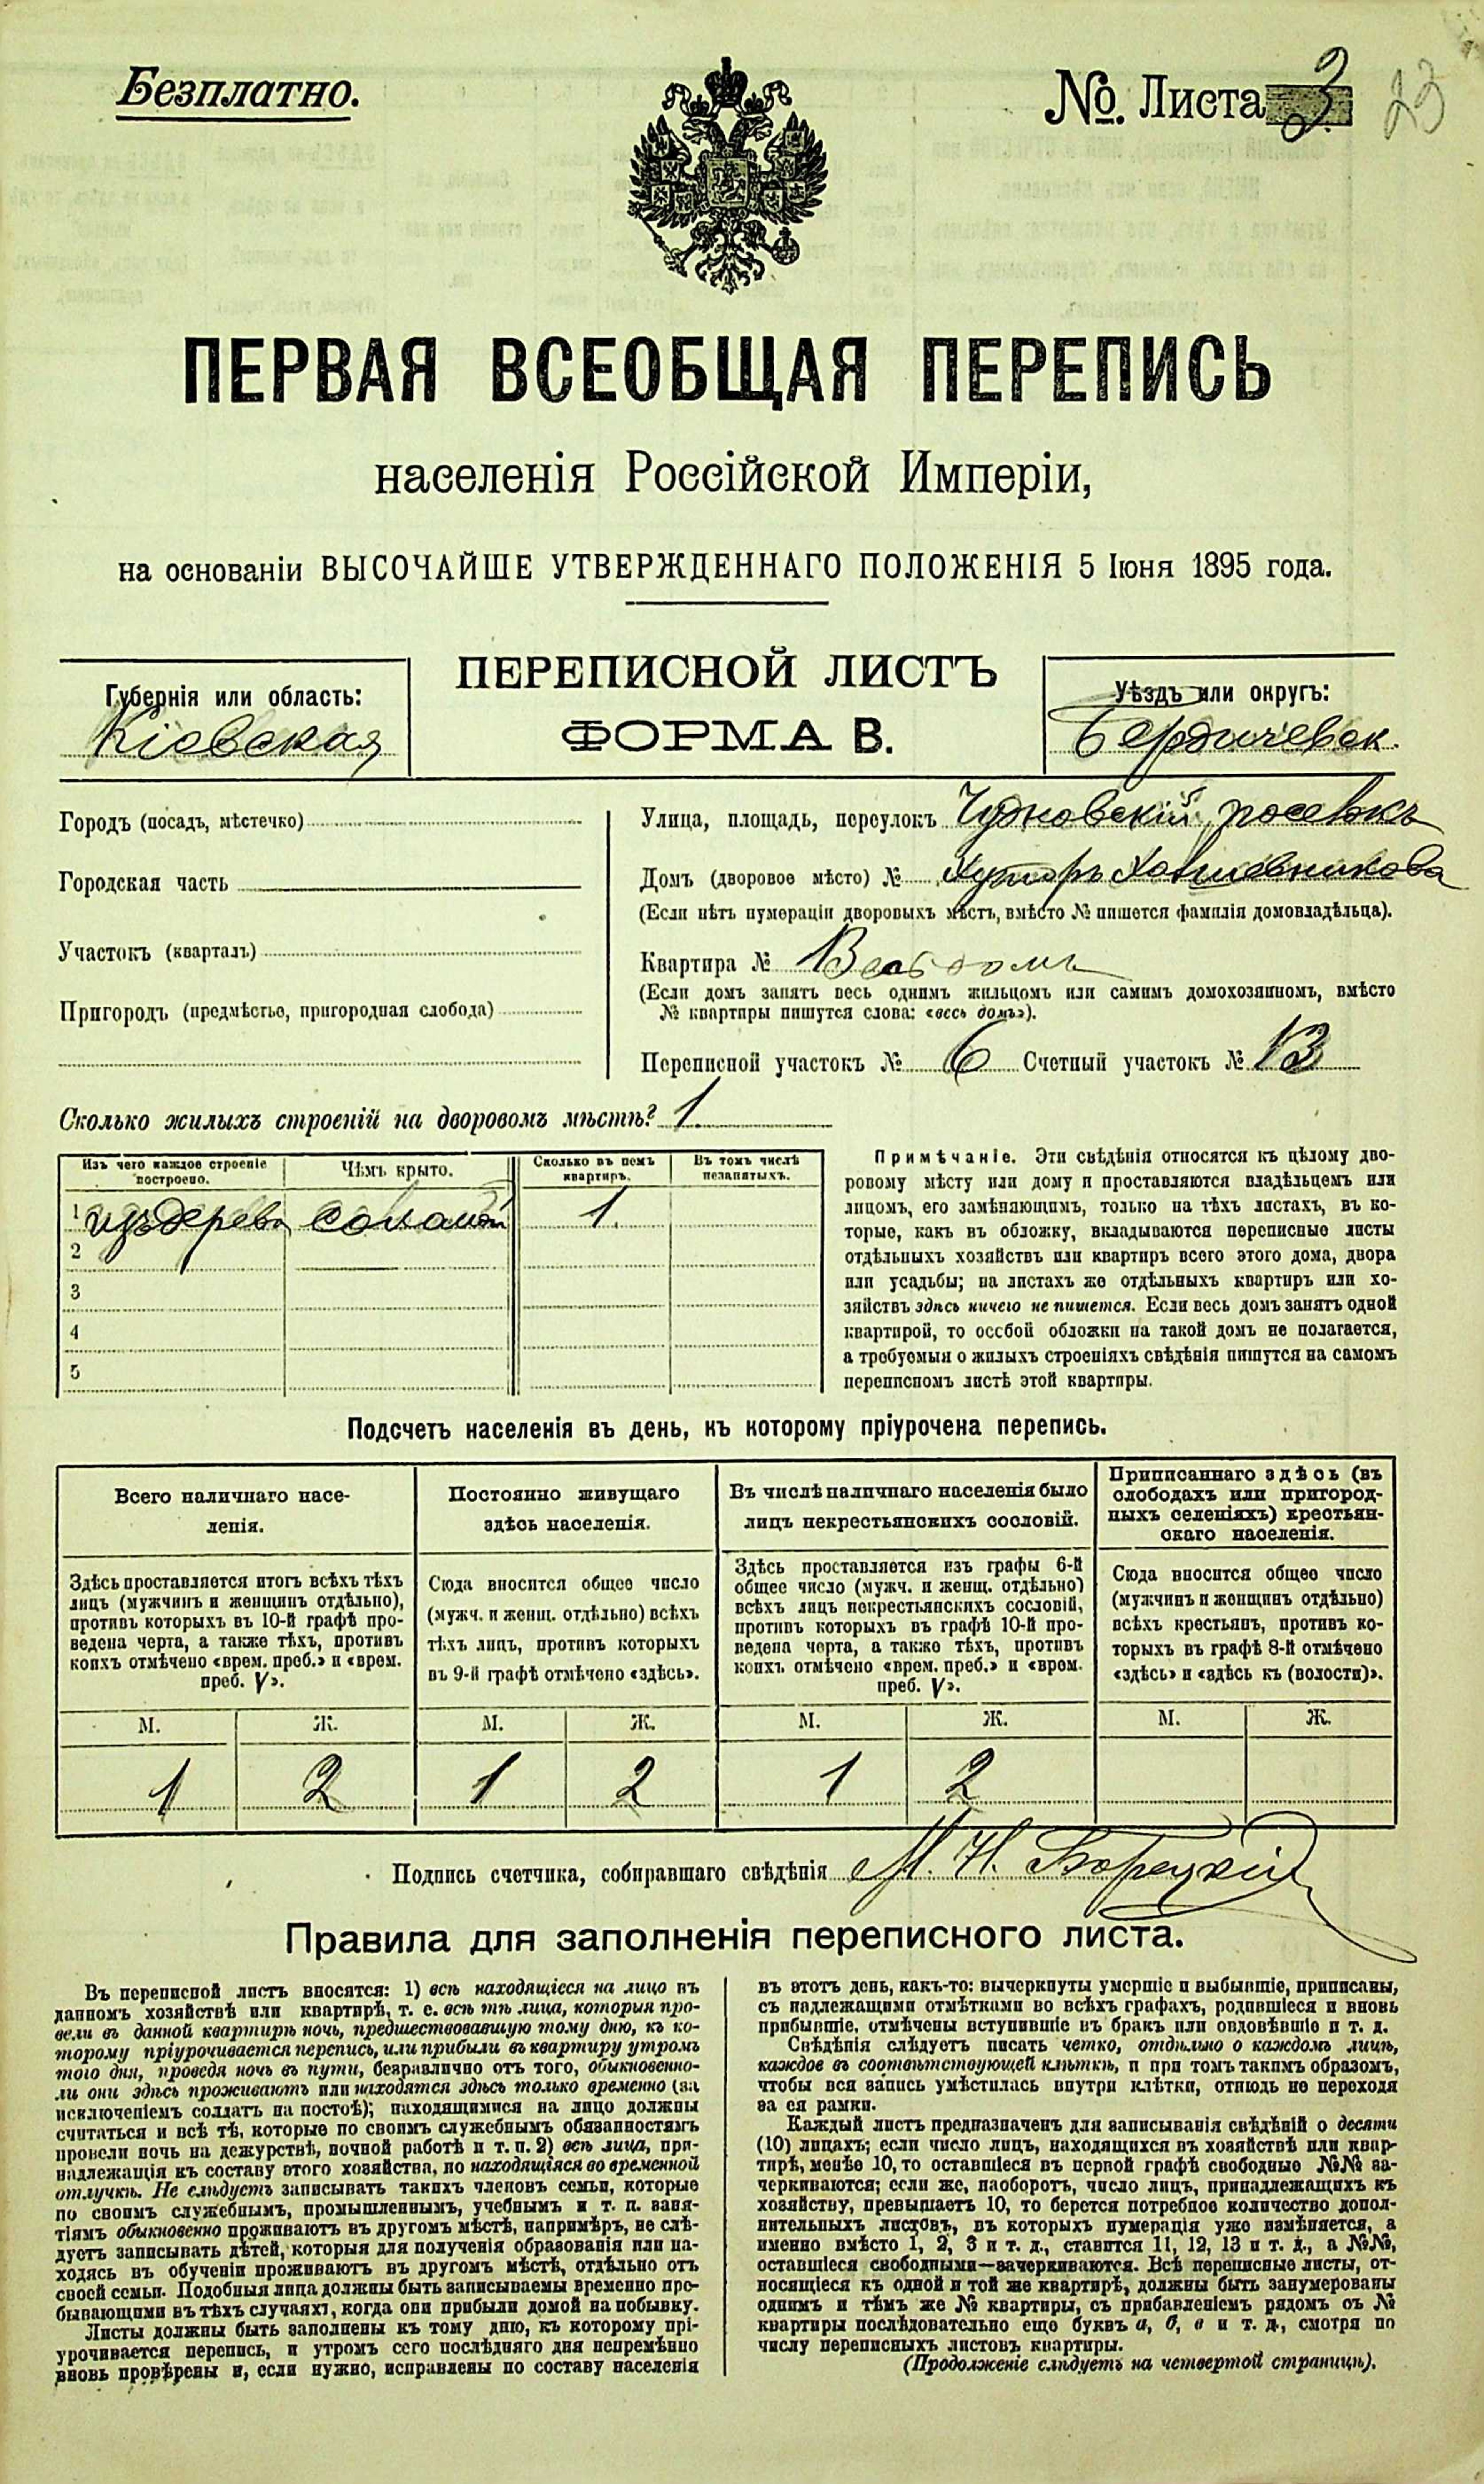 Безплатно.
№. Листа 3
23
ПЕРВАЯ ВСЕОБЩАЯ ПЕРЕПИСЬ
населенія Россійской Имперіи,
на основаніи ВЫСОЧАЙШЕ УТВЕРЖДЕННАГО ПОЛОЖЕНІЯ 5 Іюня 1895 года.
ПЕРЕПИСНОЙ ЛИСТЪ
ФОРМА В.
Губернія или область:
Кіевская
Уѣздъ или округъ:
Бердичевск.
Городъ (посадъ, мѣстечко)
Городская часть
Участокъ (кварталъ)
Пригородъ (предмѣстье, пригородная слобода)
Улица, площадь, переулокъ Чудновскій
Домъ (дворовое мѣсто) № Хуторъ
(Если нѣтъ нумераціи дворовыхъ мѣстъ, вмѣсто № пишется фамилія домовладѣльца).
Квартира № Весь домъ
(Если домъ занятъ весь однимъ жильцомъ или самимъ домохозяиномъ, вмѣсто
№ квартиры пишутся слова: «весь домъ»).
Переписной участокъ № 6 Счетный участокъ № 13
Сколько жилыхъ строеній на дворовомъ мѣстѣ? 1
Изъ чего каждое строеніе
построено.
Чѣмъ крыто.
Сколько въ немъ
квартиръ.
Въ томъ числѣ
незанятыхъ.
1 изъ дерева соломой 1.
2
3
4
5
Примѣчаніе. Эти свѣдѣнія относятся къ цѣлому дво-
ровому мѣсту или дому и проставляются владѣльцемъ или
лицомъ, его замѣняющимъ, только на тѣхъ листахъ, въ ко-
торые, какъ въ обложку, вкладываются переписные листы
отдѣльныхъ хозяйствъ или квартиръ всего этого дома, двора
или усадьбы; на листахъ же отдѣльныхъ квартиръ или хо-
зяйствъ здѣсь ничего не пишется. Если весь домъ занятъ одной
квартирой, то особой обложки на такой домъ не полагается,
а требуемыя о жилыхъ строеніяхъ свѣдѣнія пишутся на самомъ
переписномъ листѣ этой квартиры.
Подсчетъ населенія въ день, къ которому пріурочена перепись.
Всего наличнаго насе-
ленія.
Здѣсь проставляется итогъ всѣхъ тѣхъ
лицъ (мужчинъ и женщинъ отдѣльно),
противъ которыхъ въ 10-й графѣ про-
ведена черта, а также тѣхъ, противъ
коихъ отмѣчено «врем. преб.» и «врем.
преб. V».
Постоянно живущаго
здѣсь населенія.
Сюда вносится общее число
(мужч. и женщ. отдѣльно) всѣхъ
тѣхъ лицъ, противъ которыхъ
въ 9-й графѣ отмѣчено «здѣсь».
Въ числѣ наличнаго населенія было
лицъ некрестьянскихъ сословій.
Здѣсь проставляется изъ графы 6-й
общее число (мужч. и женщ. отдѣльно)
всѣхъ лицъ некрестьянскихъ сословій,
противъ которыхъ въ графѣ 10-й про-
ведена черта, а также тѣхъ, противъ
коихъ отмѣчено «врем. преб.» и «врем.
преб. V».
Приписаннаго здѣсь (въ
слободахъ или пригород-
ныхъ селеніяхъ) крестьян-
скаго населенія.
Сюда вносится общее число
(мужчинъ и женщинъ отдѣльно)
всѣхъ крестьянъ, противъ ко-
торыхъ въ графѣ 8-й отмѣчено
«здѣсь» и «здѣсь къ (волости)».
М. Ж. М. Ж. М. Ж. М. Ж.
1 2 1 2 1 2
Подпись счетчика, собиравшаго свѣдѣнія М. Н. Борецкій
Правила для заполненія переписного листа.
Въ переписной листъ вносятся: 1) всѣ находящіеся на лицо въ
данномъ хозяйствѣ или квартирѣ, т. е. всѣ тѣ лица, которыя про-
вели въ данной квартирѣ ночь, предшествовавшую тому дню, къ ко-
торому пріурочивается перепись, или прибыли въ квартиру утромъ
того дня, проведя ночь въ пути, безразлично отъ того, обыкновенно-
ли они здѣсь проживаютъ или находятся здѣсь только временно (за
исключеніемъ солдатъ на постоѣ); находящимися на лицо должны
считаться и всѣ тѣ, которые по своимъ служебнымъ обязанностямъ
провели ночь на дежурствѣ, ночной работѣ и т. п. 2) всѣ лица, при-
надлежащія къ составу этого хозяйства, но находящіяся во временной
отлучкѣ. Не слѣдуетъ записывать такихъ членовъ семьи, которые
по своимъ служебнымъ, промышленнымъ, учебнымъ и т. п. заня-
тіямъ обыкновенно проживаютъ въ другомъ мѣстѣ, напримѣръ, не слѣ-
дуетъ записывать дѣтей, которыя для полученія образованія или на-
ходясь въ обученіи проживаютъ въ другомъ мѣстѣ, отдѣльно отъ
своей семьи. Подобныя лица должны быть записываемы временно пре-
бывающими въ тѣхъ случаяхъ, когда они прибыли домой на побывку.
Листы должны быть заполнены къ тому дню, къ которому прі-
урочивается перепись, и утромъ сего послѣдняго дня непремѣнно
вновь провѣрены и, если нужно, исправлены по составу населенія
въ этотъ день, какъ-то: вычеркнуты умершіе и выбывшіе, приписаны,
съ надлежащими отмѣтками во всѣхъ графахъ, родившіеся и вновь
прибывшіе, отмѣчены вступившіе въ бракъ или овдовѣвшіе и т. д.
Свѣдѣнія слѣдуетъ писать четко, отдѣльно о каждомъ лицѣ,
каждое въ соотвѣтствующей клѣткѣ, и при томъ такимъ образомъ,
чтобы вся запись умѣстилась внутри клѣтки, отнюдь не переходя
за ея рамки.
Каждый листъ предназначенъ для записыванія свѣдѣній о десяти
(10) лицахъ; если число лицъ, находящихся въ хозяйствѣ или квар-
тирѣ, менѣе 10, то оставшіеся въ первой графѣ свободные №№ за-
черкиваются; если же, наоборотъ, число лицъ, принадлежащихъ къ
хозяйству, превышаетъ 10, то берется потребное количество допол-
нительныхъ листовъ, въ которыхъ нумерація уже измѣняется, а
именно вмѣсто 1, 2, 3 и т. д., ставится 11, 12, 13 и т. д., а №№,
оставшіеся свободными—зачеркиваются. Всѣ переписные листы, от-
носящіеся къ одной и той же квартирѣ, должны быть занумерованы
однимъ и тѣмъ же № квартиры, съ прибавленіемъ рядомъ съ №
квартиры послѣдовательно еще буквъ а, б, в и т. д., смотря по
числу переписныхъ листовъ квартиры.
(Продолженіе слѣдуетъ на четвертой страницѣ).